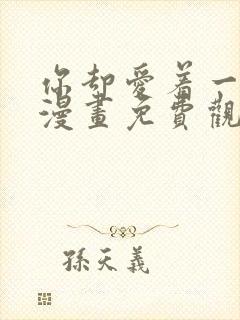 你却愛着一
漫畫免費觀
孫天義